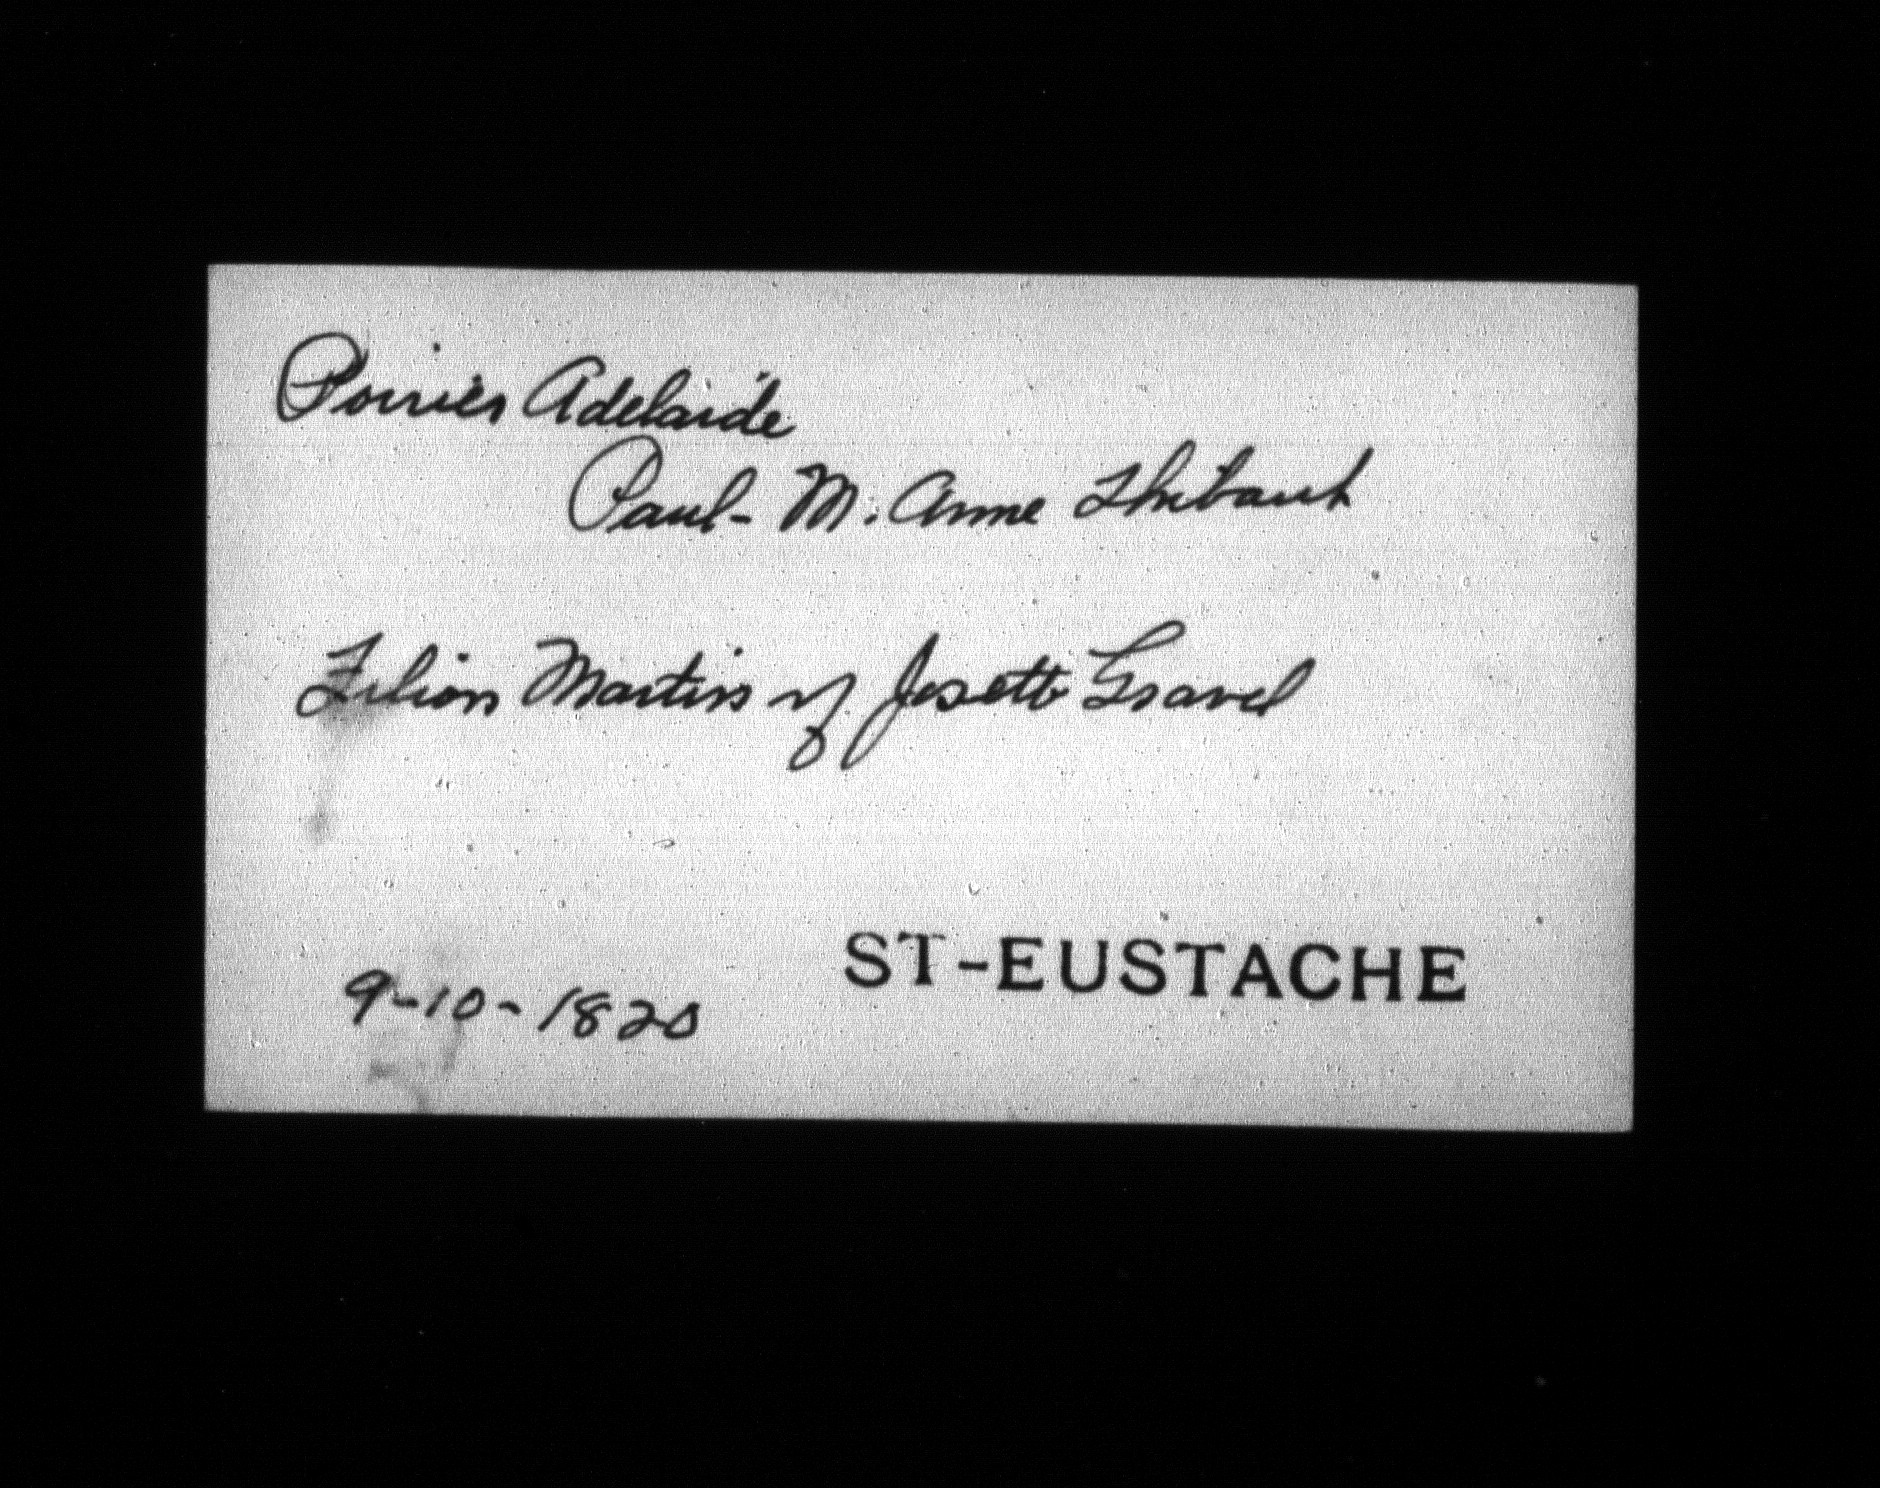 Poirier Adelaide
Paul - M. Anne Thibault
Filion Martin vf Josette Gravel
ST-EUSTACHE
9-10-1820